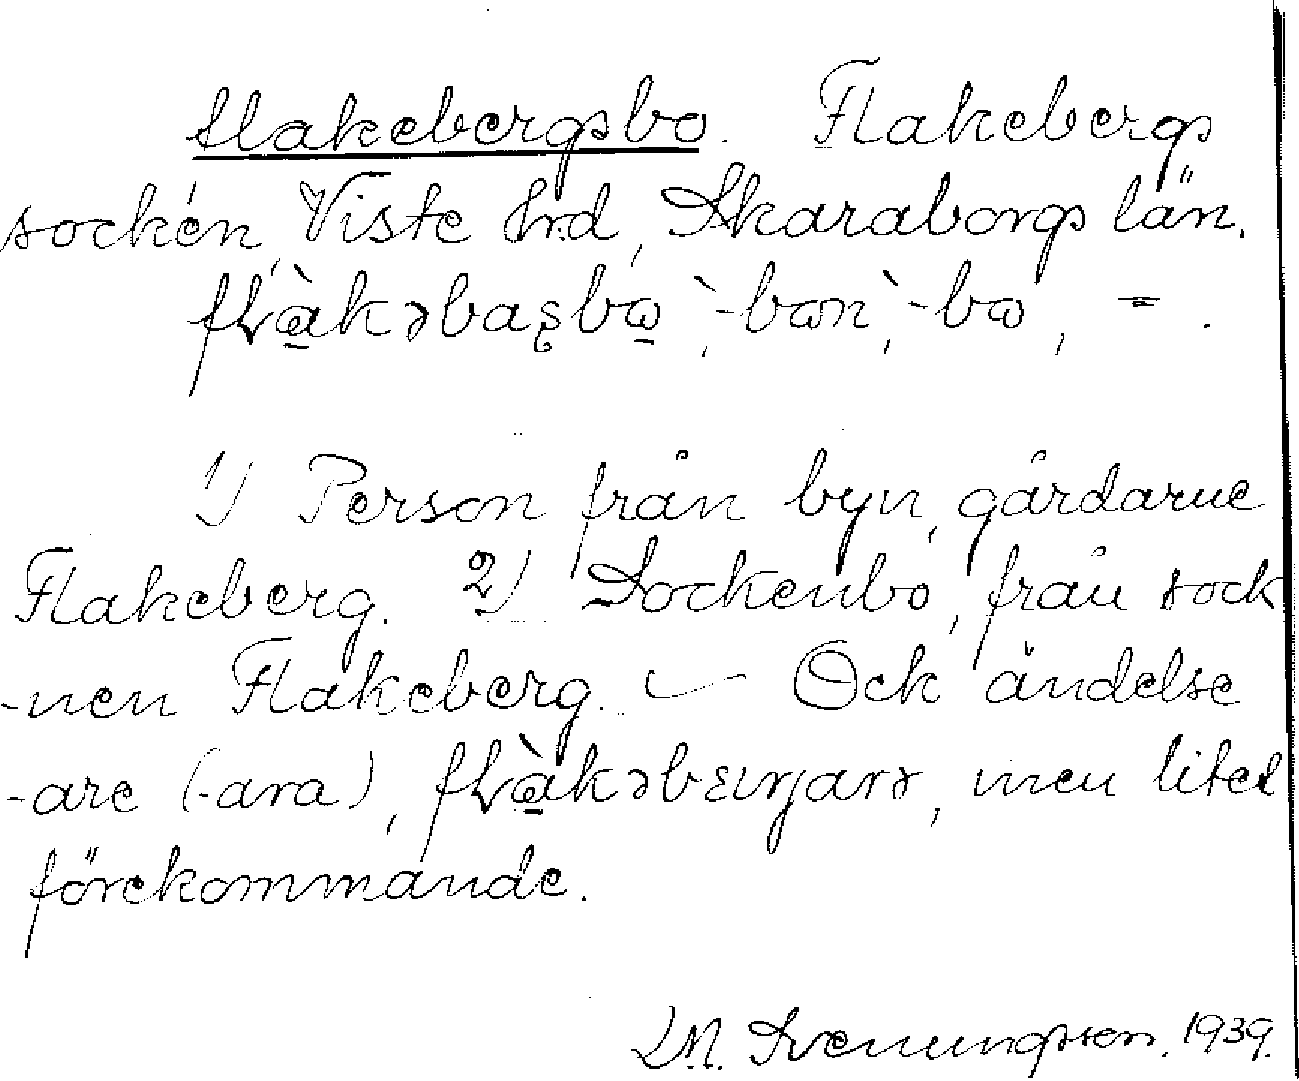 flakebergsbo. Flakebergs
socken, Viste hrd, Skaraborgs län.
flàkəbaʂbo, -bon, -bo, =.
1) Person från byn, gårdarne
Flakeberg. 2) Sockenbo, från sock
-nen Flakeberg. — Ock ändelse
-are (-ara), flàkəbærjarə, men litet
förekommande.
L.M. Svenungsson. 1939.